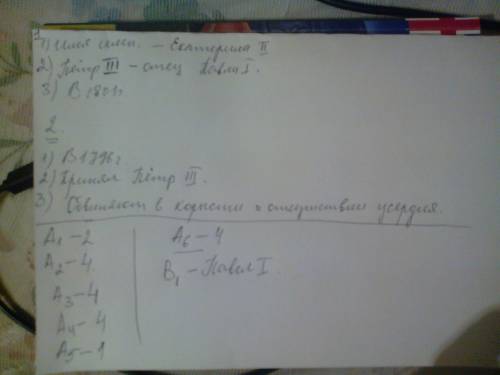 1) Имя – Екатерина II
2) Пётр III – отец Павла I.
3) В 1801г
2.
1) В 1796г.
2) Принял Пётр III.
3) Обвиняют в корысти и отсутствии усердия.
A1 – 2
A2 – 4
A3 – 4
A4 – 4
A5 – 1
A6 – 4
B1 – Павел I.